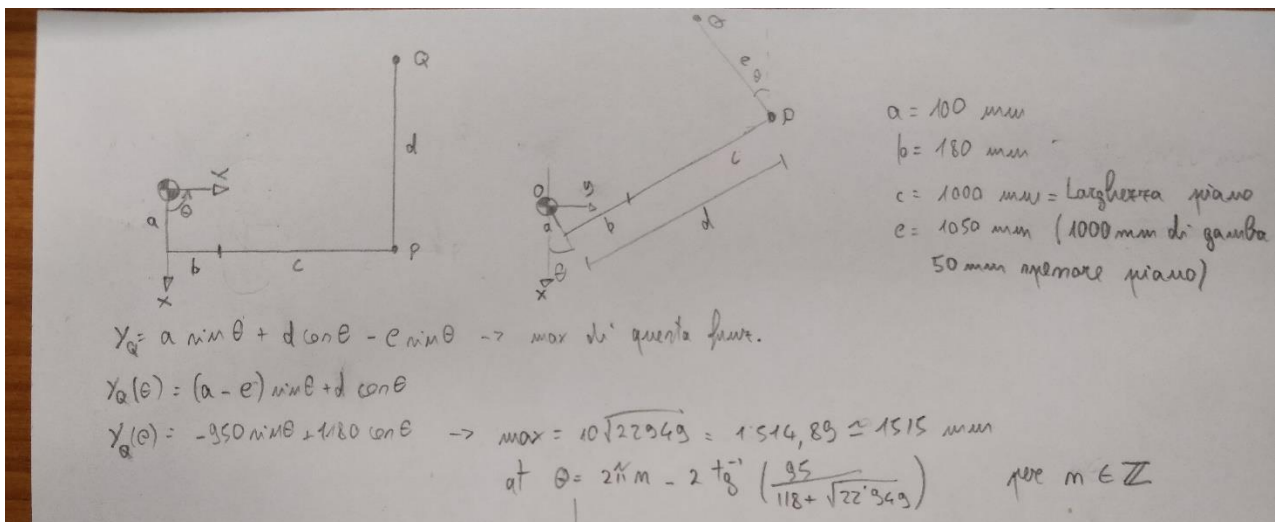 Q
d
Y
θ
a
P
b
c
X
Q
e
θ
P
c
O
y
a
b
d
θ
X
a = 100 mm
b = 180 mm
c = 1000 mm = Larghezza piano
e = 1050 mm (1000 mm di gamba
50 mm spessore piano)
Y_Q = a sin θ + d cos θ - e sin θ -> max di questa funz.
Y_Q(θ) = (a - e) sin θ + d cos θ
Y_Q(θ) = -950 sin θ + 1180 cos θ -> max = 10√22949 = 1514,89 ≃ 1515 mm
at θ = 2πn - 2 tg⁻¹ (95 / (118 + √22949)) per n ∈ ℤ